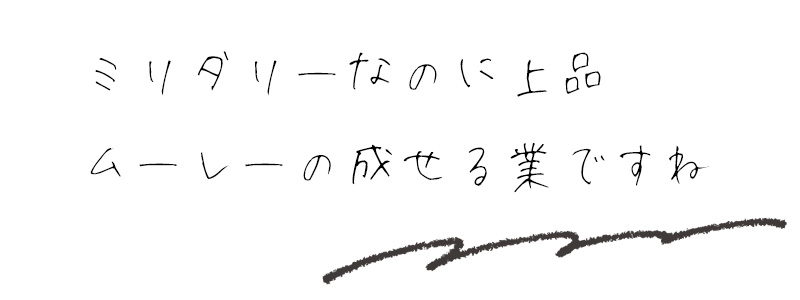 ミリダリーなのに上品
ムーレーの成せる業ですね